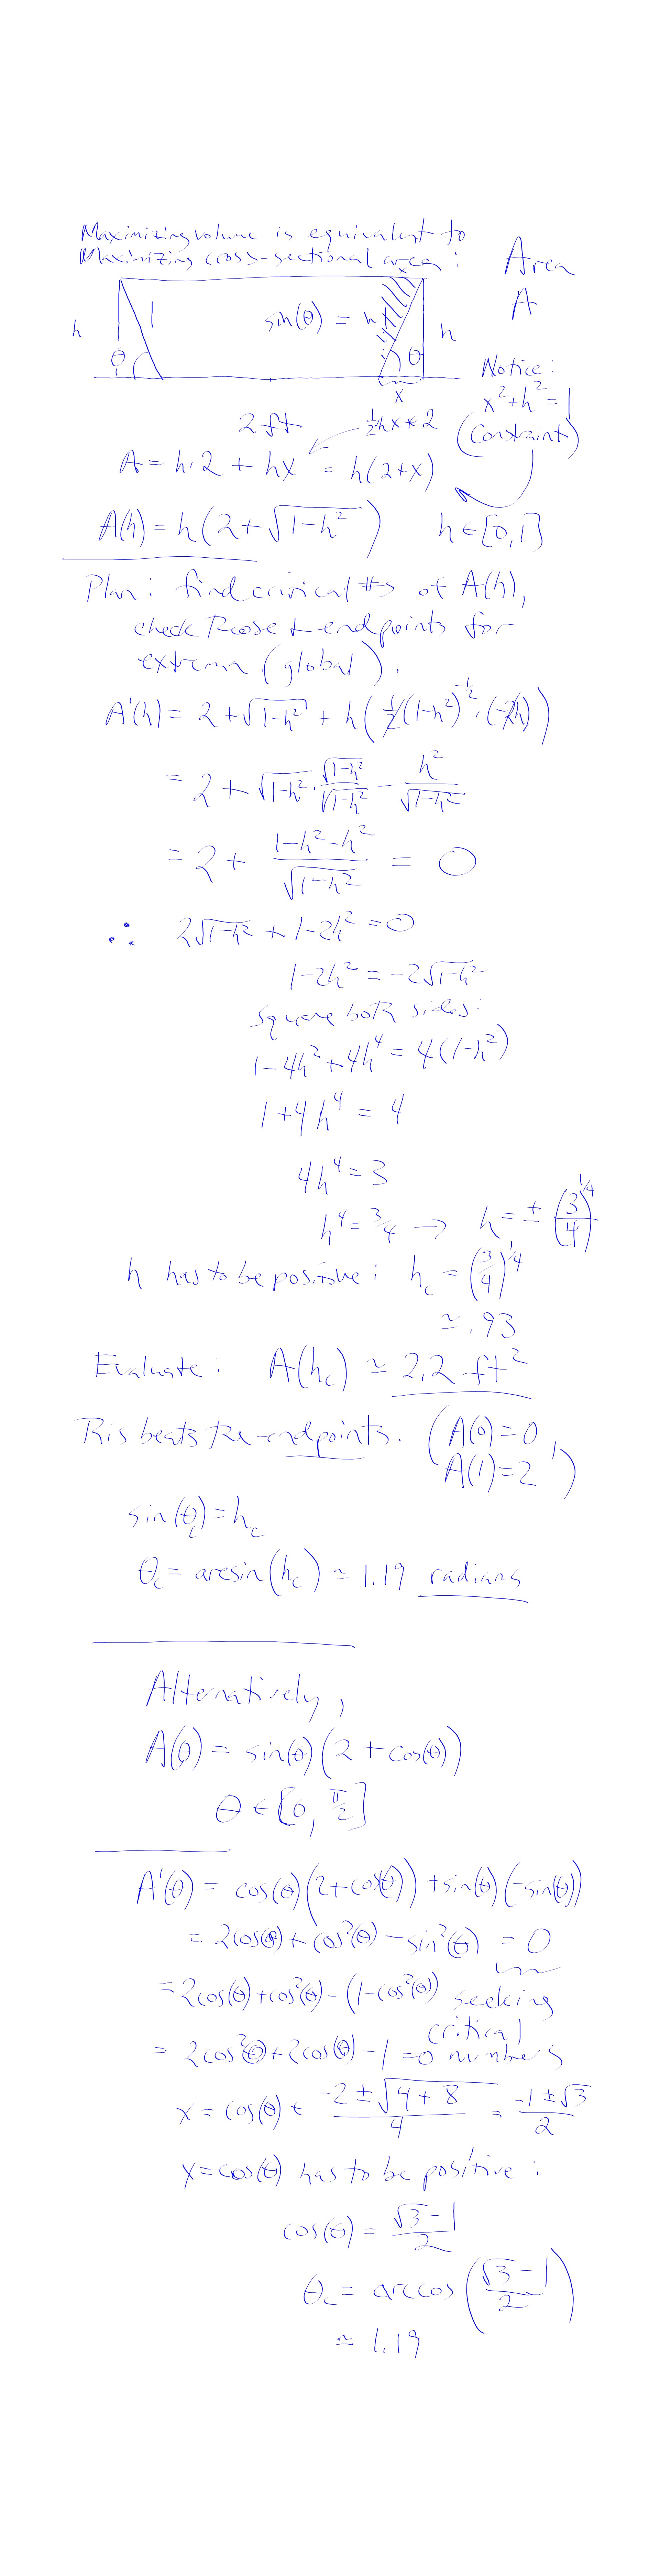 Maximizing volume is equivalent to
Maximizing cross-sectional area:
Area
A
h
1
θ
sin(θ) = h
1
θ
h
x
2 ft
Notice:
x²+h²=1
(Constraint)
½hx*2
A = h·2 + hx = h(2+x)
A(h) = h(2+√(1-h²)) h∈[0,1]
Plan: find critical #s of A(h),
check those + endpoints for
extrema (global).
A'(h) = 2+√(1-h²) + h(½(1-h²)^(-½)·(-2h))
= 2 + √(1-h²)·√(1-h²)/√(1-h²) - h²/√(1-h²)
= 2 + (1-h²-h²)/√(1-h²) = 0
∴ 2√(1-h²) + 1-2h² = 0
1-2h² = -2√(1-h²)
square both sides:
1-4h²+4h⁴ = 4(1-h²)
1+4h⁴ = 4
4h⁴ = 3
h⁴ = 3/4 → h = ±(3/4)^(1/4)
h has to be positive: h_c = (3/4)^(1/4)
≃ .93
Evaluate: A(h_c) ≃ 2.2 ft²
This beats the endpoints. (A(0)=0,
A(1)=2)
sin(θ_c) = h_c
θ_c = arcsin(h_c) ≃ 1.19 radians
Alternatively,
A(θ) = sin(θ)(2+cos(θ))
θ∈[0, π/2]
A'(θ) = cos(θ)(2+cos(θ)) + sin(θ)(-sin(θ))
= 2cos(θ)+cos²(θ)-sin²(θ) = 0
= 2cos(θ)+cos²(θ)-(1-cos²(θ)) seeking
critical
= 2cos²(θ)+2cos(θ)-1 = 0 numbers
x = cos(θ) = (-2±√(4+8))/4 = (-1±√3)/2
x = cos(θ) has to be positive:
cos(θ) = (√3-1)/2
θ_c = arccos((√3-1)/2)
≃ 1.19